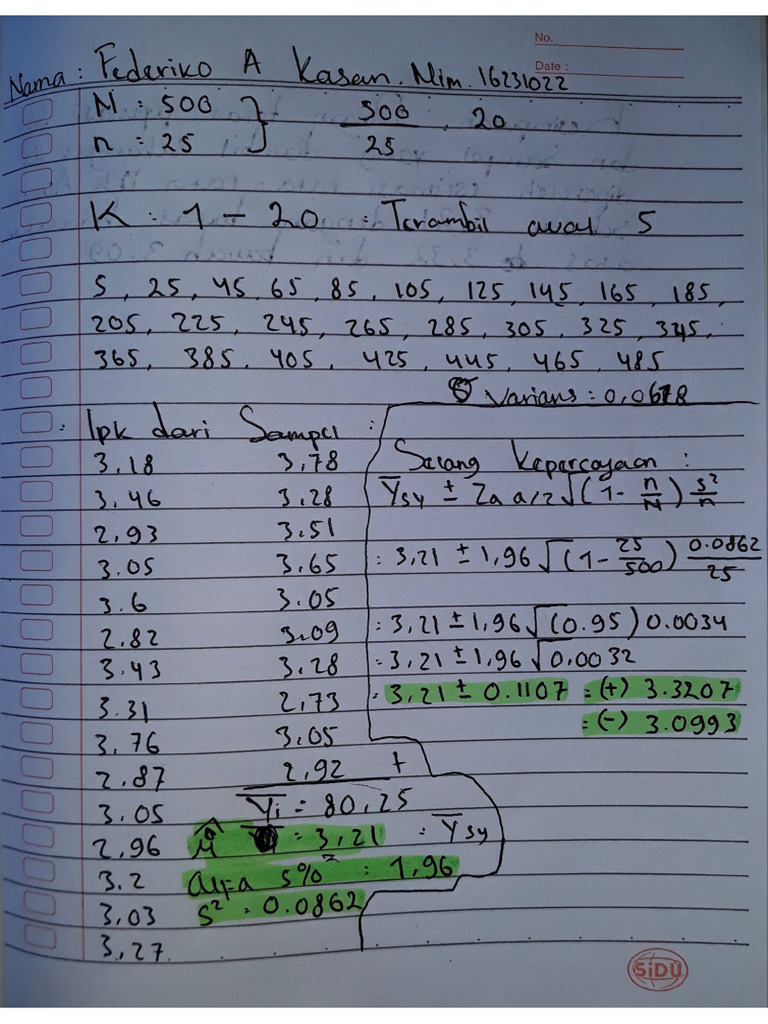 No.
Date :
Nama : Federiko A Kasan. Nim. 16231022
N : 500 } 500 . 20
n : 25 25
K : 1 - 20 : Terambil awal 5
5, 25, 45, 65, 85, 105, 125, 145, 165, 185,
205, 225, 245, 265, 285, 305, 325, 345,
365, 385, 405, 425, 445, 465, 485
Varians : 0,0678
: Ipk dari Sampel :
3,18 3,78
3,46 3,28
2,93 3.51
3.05 3.65
3.6 3.05
2.82 3.09
3.43 3.28
3.31 2,73
3,76 3,05
2.87 2,92 +
3.05
2,96
3.2
3,03
3,27
Yi = 80,25
M̂ = 3,21 = Ȳsy
Alfa 5% : 1,96
S² : 0.0862
Selang Kepercayaan :
Ȳsy ± Za a/2 √(1 - n/N) s²/n
: 3,21 ± 1,96 √(1 - 25/500) 0.0862/25
: 3,21 ± 1,96 √(0.95) 0.0034
= 3,21 ± 1,96 √0,0032
: 3,21 ± 0.1107 = (+) 3.3207
= (-) 3.0993
SiDU